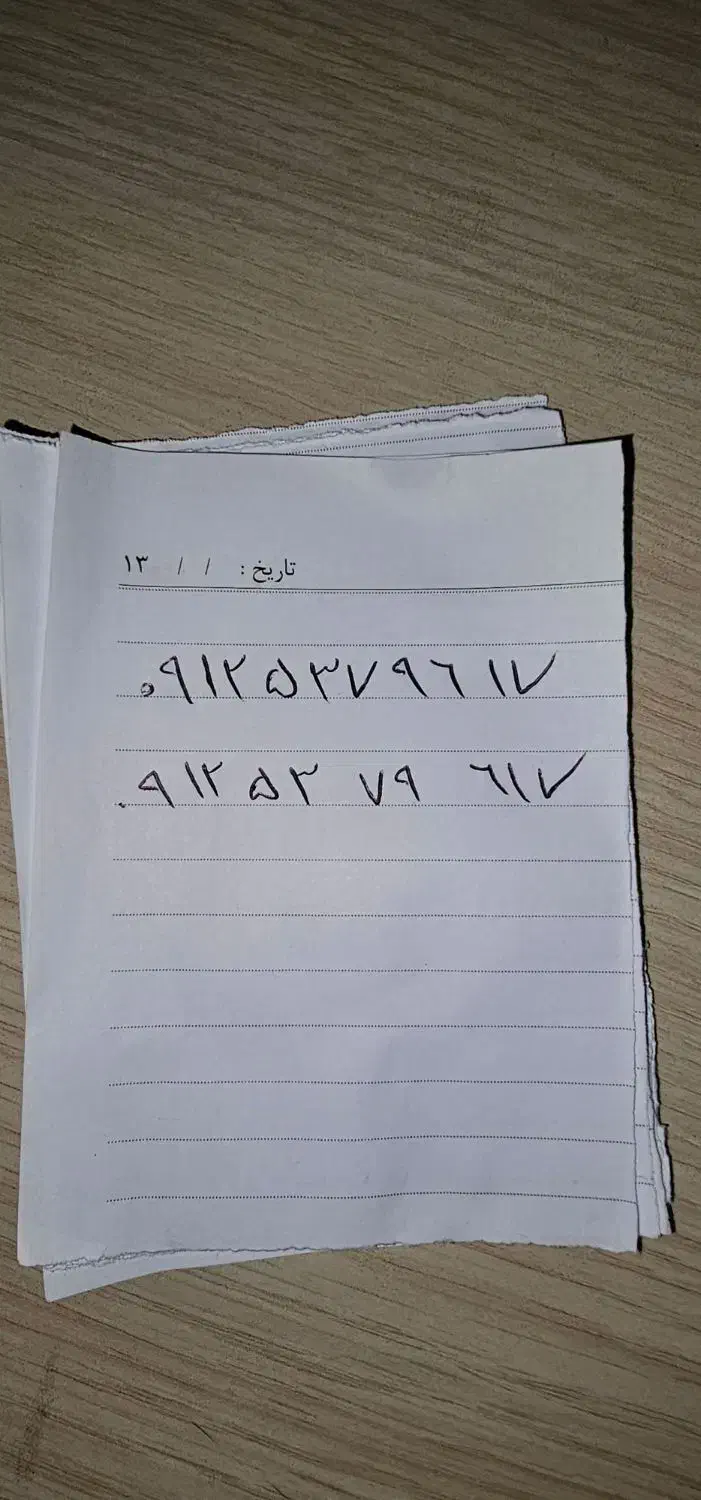 تاریخ : / / ۱۳
۰۹۱۲۵۳۷۹۶۱۷
۰۹۱۲۵۳ ۷۹ ۶۱۷